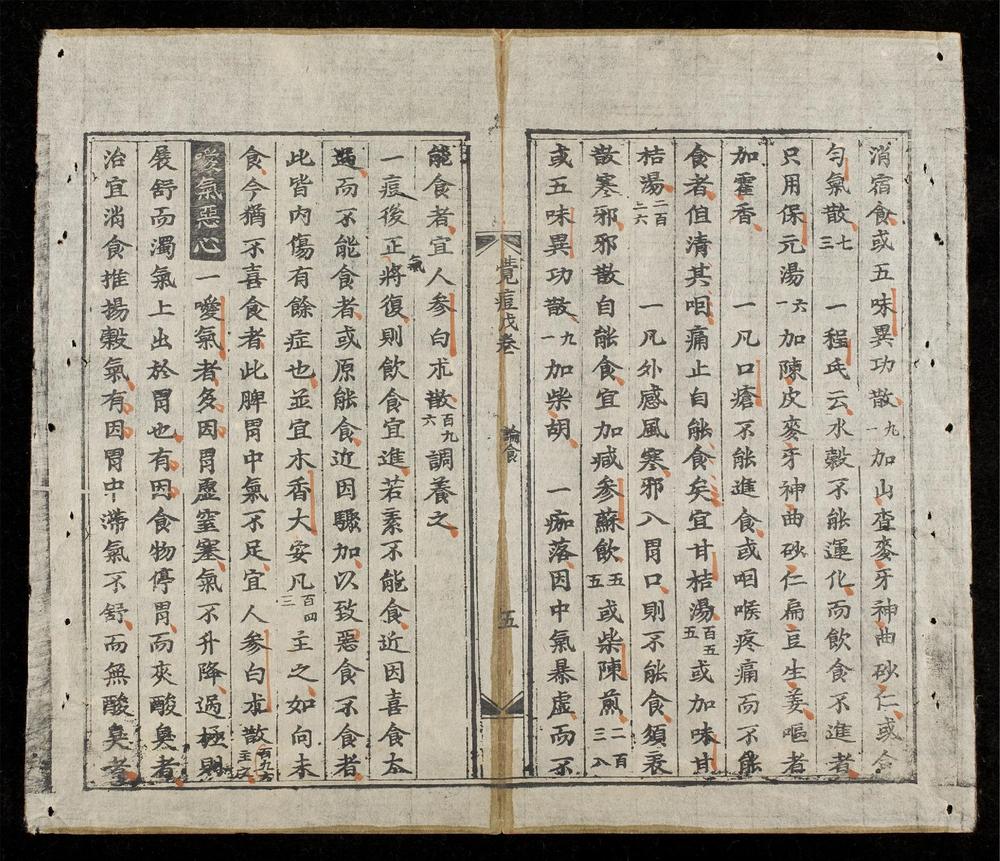 消宿食或五味異功散九一加山查麥牙神曲砂仁或合
勻氣散七三 一程氏云水穀不能運化而飲食不進者
只用保元湯六一加陳皮麥牙神曲砂仁扁豆生姜嘔者
加藿香 一凡口瘡不能進食或咽喉疼痛而不能
食者但清其咽痛止自能食矣宜甘桔湯百五五或加味甘
桔湯二百二六 一凡外感風寒邪入胃口則不能食須表
散寒邪邪散自能食宜加减参蘇飲五五或柴陳煎二百三八
或五味異功散九一加柴胡 一痂落因中氣暴虚而不
覽痘戊巻 論食 五
能食者宜人参白朮散百九六調養之
一痘後正氣將復則飲食宜進若素不能食近因喜食太
過而不能食者或原能食近因驟加以致惡食不食者
此皆内傷有餘症也並宜木香大安凡百四三主之如向未
食今猶不喜食者此脾胃中氣不足宜人参白朮散百九六主之
噯氣惡心 一噯氣者多因胃虚窒塞氣不升降過極則
展舒而濁氣上出於胃也有因食物停胃而夾酸臭者
治宜消食推揚穀氣有因胃中滯氣不舒而無酸臭者